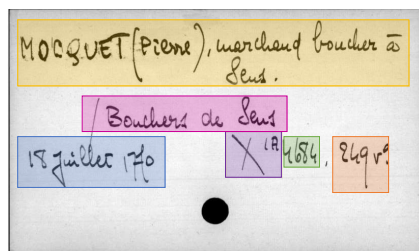 MOCQUET (Pierre), marchand boucher à
Sens.
Bouchers de Sens
18 Juillet 1770
X 1A 4684, 249 vº